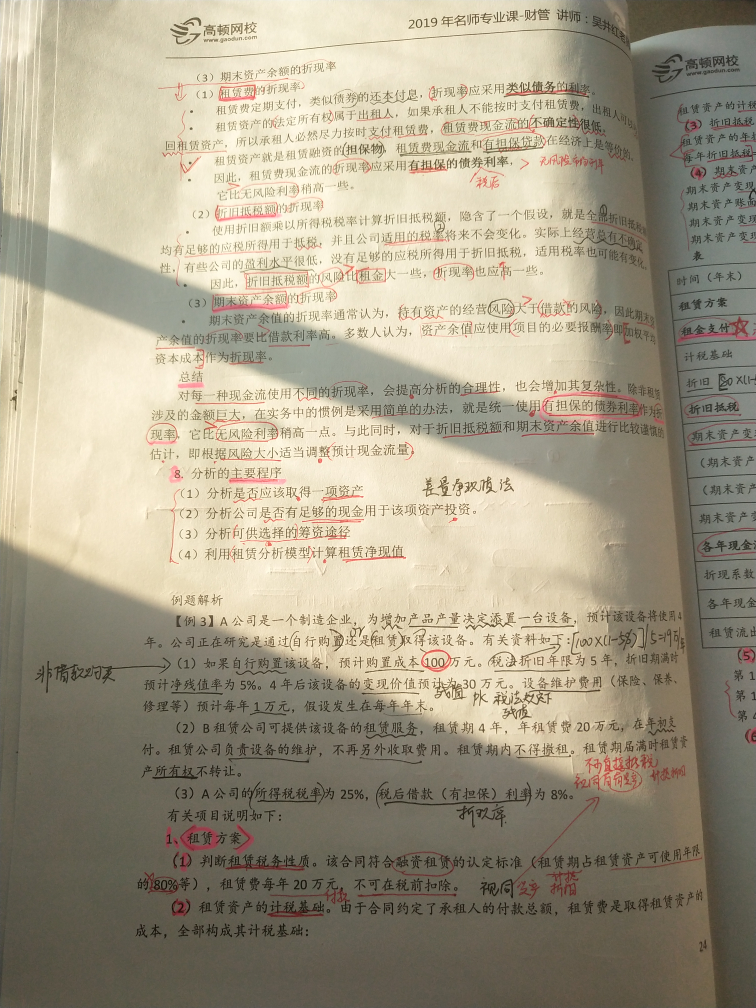 高顿网校
www.gaodun.com
2019年名师专业课-财管 讲师：吴井红
（3）期末资产余额的折现率
（1）租赁费的折现率
• 租赁费定期支付，类似债券的还本付息，折现率应采用类似债务的利率。
• 租赁资产的法定所有权属于出租人，如果承租人不能按时支付租赁费，出租人可以
回租赁资产，所以承租人必然尽力按时支付租赁费，租赁费现金流的不确定性很低。
• 租赁资产就是租赁融资的担保物，租赁费现金流和有担保贷款在经济上是等价的。
• 因此，租赁费现金流的折现率应采用有担保的债券利率，
税后
它比无风险利率稍高一些。
（2）折旧抵税额的折现率
• 使用折旧额乘以所得税税率计算折旧抵税额，隐含了一个假设，就是全部折旧抵
均有足够的应税所得用于抵税，并且公司适用的税率将来不会变化。实际上经营总有不确定
性，有些公司的盈利水平很低，没有足够的应税所得用于折旧抵税，适用税率也可能有变化。
• 因此，折旧抵税额的风险比租金大一些，折现率也应高一些。
（3）期末资产余额的折现率
• 期末资产余值的折现率通常认为，持有资产的经营风险大于借款的风险，因此期末资
产余值的折现率要比借款利率高。多数人认为，资产余值应使用项目的必要报酬率即加权平均
资本成本作为折现率。
总结
对每一种现金流使用不同的折现率，会提高分析的合理性，也会增加其复杂性。除非租赁
涉及的金额巨大，在实务中的惯例是采用简单的办法，就是统一使用有担保的债券利率作为折
现率，它比无风险利率稍高一点。与此同时，对于折旧抵税额和期末资产余值进行比较谨慎的
估计，即根据风险大小适当调整预计现金流量。
8. 分析的主要程序
（1）分析是否应该取得一项资产
差量净现值法
（2）分析公司是否有足够的现金用于该项资产投资。
（3）分析可供选择的筹资途径
（4）利用租赁分析模型计算租赁净现值
例题解析
【例 3】A 公司是一个制造企业，为增加产品产量决定添置一台设备，预计该设备将使用 4
年。公司正在研究是通过自行购置还是租赁取得该设备。有关资料如下：
[100×(1-5%)]/5=19万/年
（1）如果自行购置该设备，预计购置成本 100 万元。税法折旧年限为 5 年，折旧期满时
预计净残值率为 5%。4 年后该设备的变现价值预计为 30 万元。设备维护费用（保险、保养、
残值 pk 税法账下
残值
修理等）预计每年 1 万元，假设发生在每年年末。
（2）B 租赁公司可提供该设备的租赁服务，租赁期 4 年，年租赁费 20 万元，在年初支
付。租赁公司负责设备的维护，不再另外收取费用。租赁期内不得撤租。租赁期届满时租赁资
产所有权不转让。
不可直接抵税
（3）A 公司的所得税税率为 25%，税后借款（有担保）利率为 8%。
折现率
有关项目说明如下：
1、租赁方案
（1）判断租赁税务性质。该合同符合融资租赁的认定标准（租赁期占租赁资产可使用年限
的 80%等），租赁费每年 20 万元，不可在税前扣除。
视同
计提
折旧
（2）租赁资产的计税基础。由于合同约定了承租人的付款总额，租赁费是取得租赁资产的
付款
成本，全部构成其计税基础：
24
高顿网校
www.gaodun.com
租赁资产的计税
（3）折旧抵税
租赁资产的年折
每年折旧抵税
（4）期末资产
期末资产变现
期末资产账面
期末资产变现
期末资产变现
表
时间（年末）
租赁方案
租金支付
计税基础
折旧
折旧抵税
期末资产变
（期末资产
（期末资产
期末资产变
各年现金
折现系数
各年现金
租赁流出
（5）
第 1
第 1
第 4